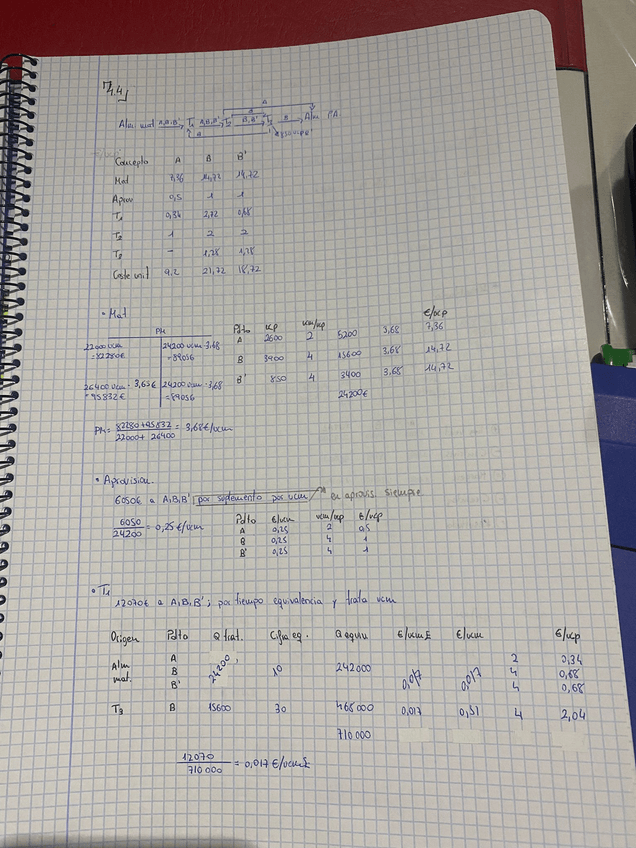 4.4
A
B
Alm mat A,B,B' → T1 A,B,B' → T2 B,B' → T3 B → Alm PA
B
Concepto A B B'
Mat 7,36 14,72 14,72
Aprov 0,5 1 1
T1 0,34 2,72 0,68
T2 1 2 2
T3 - 1,28 1,28
Coste unit 9,2 21,72 18,72
• Mat
PM
22000 ucm = 82280€ 24200 ucm · 3,68 = 89056
26400 ucm · 3,63€ = 95832€ 24200 ucm · 3,68 = 89056
Pdto ucp ucm/ucp €/ucp
A 2600 2 5200 3,68 7,36
B 3900 4 15600 3,68 14,72
B' 850 4 3400 3,68 14,72
24200€
PM = 82280+95832 / 22000 + 26400 = 3,68€/ucm
• Aprovision.
6050€ a A,B,B'; por suplemento por ucm en aprovis. siempre
6050 / 24200 = 0,25 €/ucm
Pdto €/ucm ucm/ucp €/ucp
A 0,25 2 0,5
B 0,25 4 1
B' 0,25 4 1
• T1
12070€ a A,B,B'; por tiempo equivalencia y trata ucm
Origen Pdto Q trat. Cifra eq. Q equiv €/ucmE €/ucm €/ucp
Alm mat. A 2 0,34
B 24200 10 242000 0,017 0,017 4 0,68
B' 4 0,68
T3 B 15600 30 468000 0,017 0,51 4 2,04
710000
12070 / 710 000 = 0,017 €/ucmE